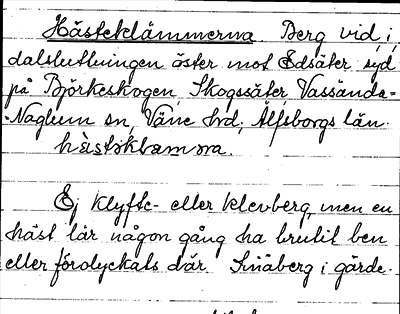 Hästeklämmerna Berg vid, i,
dalslutningen öster mot Edsäter syd
på Björkeskogen, Skogssäter, Vassända-
-Naglum sn, Väne hrd, Älfsborgs län.
hästklamra.
Ej klyfte- eller klevberg, men en
häst lär någon gång ha brutit ben
eller förolyckats där. Småberg i gärde.